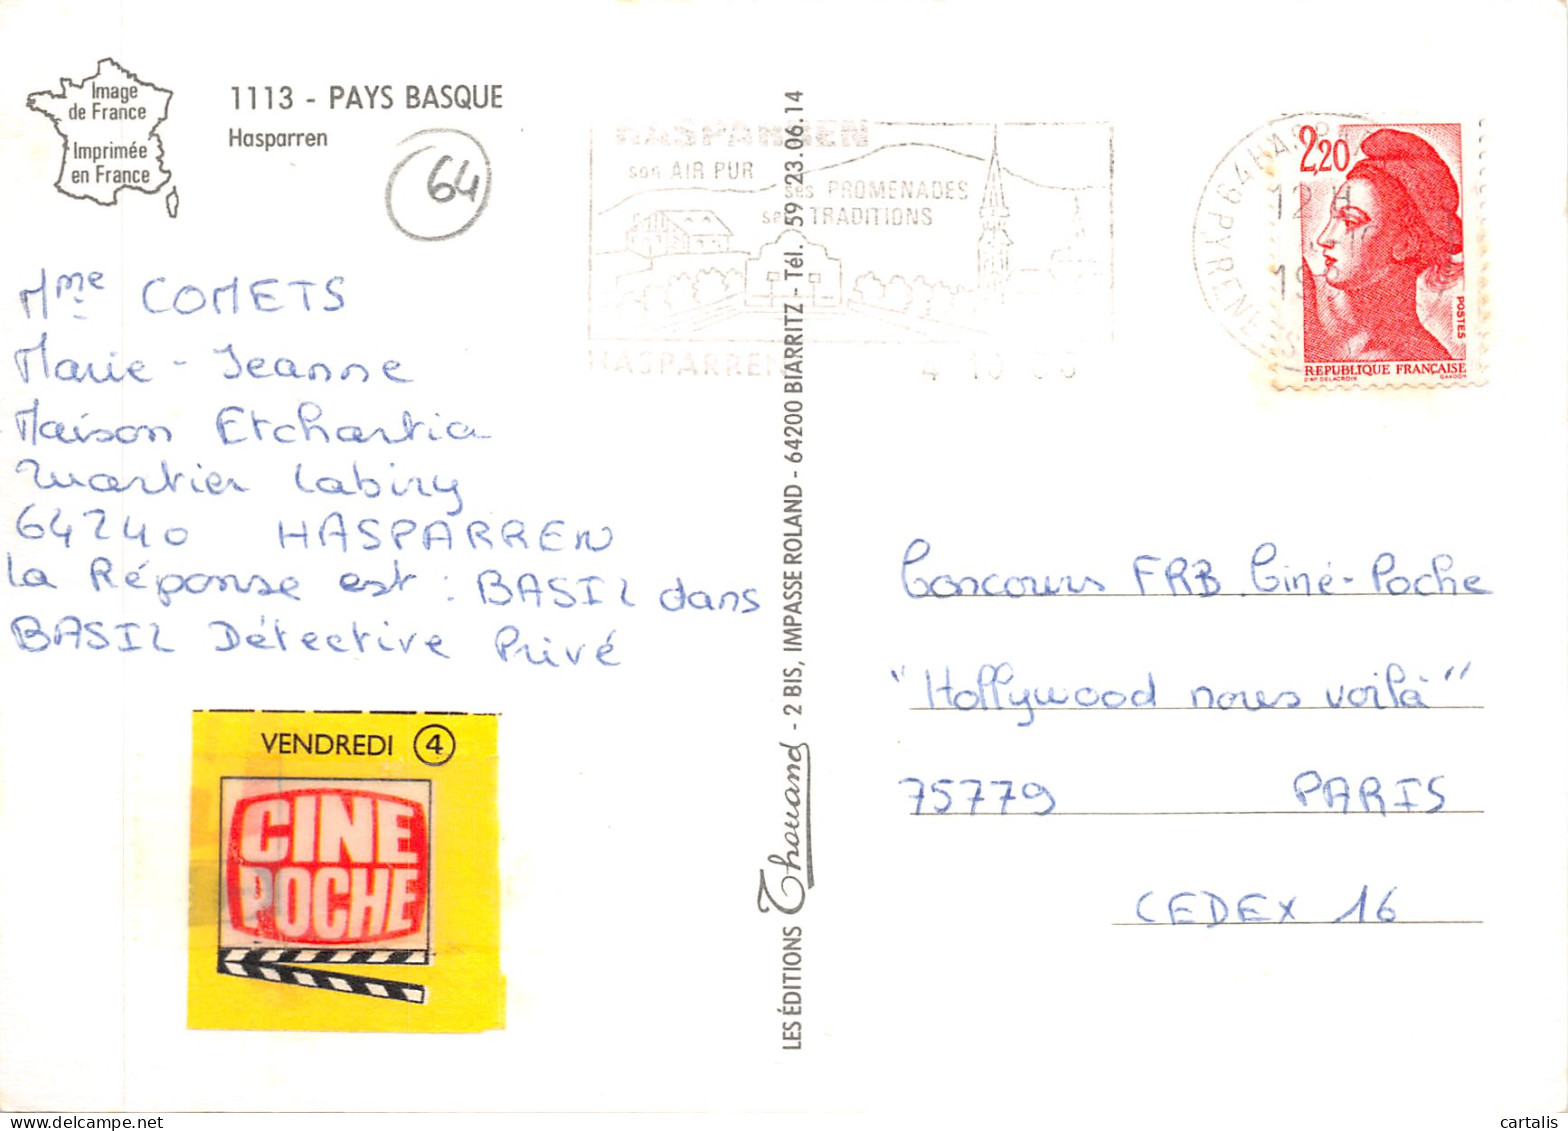 Image
de France
Imprimée
en France
1113 - PAYS BASQUE
Hasparren
64
Mme COMETS
Marie-Jeanne
Maison Etchartia
Quartier Labiry
64240 HASPARREN
La Réponse est : BASIL dans
BASIL Détective Privé
VENDREDI 4
CINE
POCHE
LES ÉDITIONS Thouand - 2 BIS, IMPASSE ROLAND - 64200 BIARRITZ - Tél. 59 23.06.14
HASPARREN
son AIR PUR
ses PROMENADES
ses TRADITIONS
HASPARREN
12 H
19
2,20
POSTES
REPUBLIQUE FRANÇAISE
D'AP. DELACROIX GANDON
Concours FRB Ciné-Poche
"Hollywood nous voilà"
75779 PARIS
CEDEX 16
cartalis